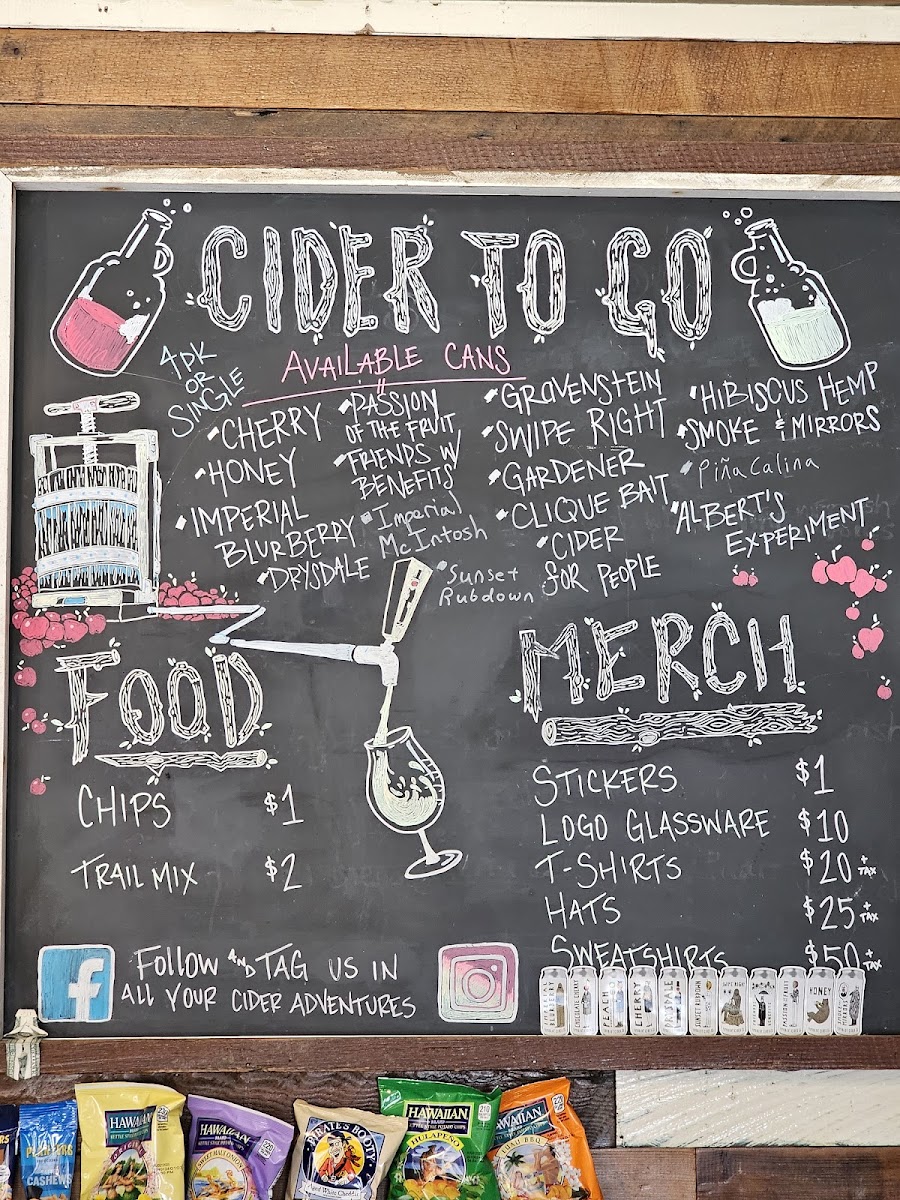 CIDER TO GO
4PK
OR
SINGLE
AVAILABLE CANS
CHERRY
HONEY
IMPERIAL
BLURBERRY
DRYSDALE
PASSION
OF THE FRUIT
FRIENDS W/
BENEFITS
Imperial
McIntosh
Sunset
Rubdown
GRAVENSTEIN
SWIPE RIGHT
GARDENER
CLIQUE BAIT
CIDER
FOR PEOPLE
HIBISCUS HEMP
SMOKE & MIRRORS
Piña Calina
ALBERT'S
EXPERIMENT
FOOD
CHIPS $1
TRAIL MIX $2
MERCH
STICKERS $1
LOGO GLASSWARE $10
T-SHIRTS $20 + TAX
HATS $25 + TAX
SWEATSHIRTS $50 + TAX
f
FOLLOW AND TAG US IN
ALL YOUR CIDER ADVENTURES
PEACH
CHERRY
HONEY
PLANTERS
CASHEWS
HAWAIIAN
ORIGINAL
HAWAIIAN
SWEET MAUI ONION
PIRATE'S BOOTY
Aged White Cheddar
HAWAIIAN
HULAPEÑO
210
HAWAIIAN
LUAU BBQ